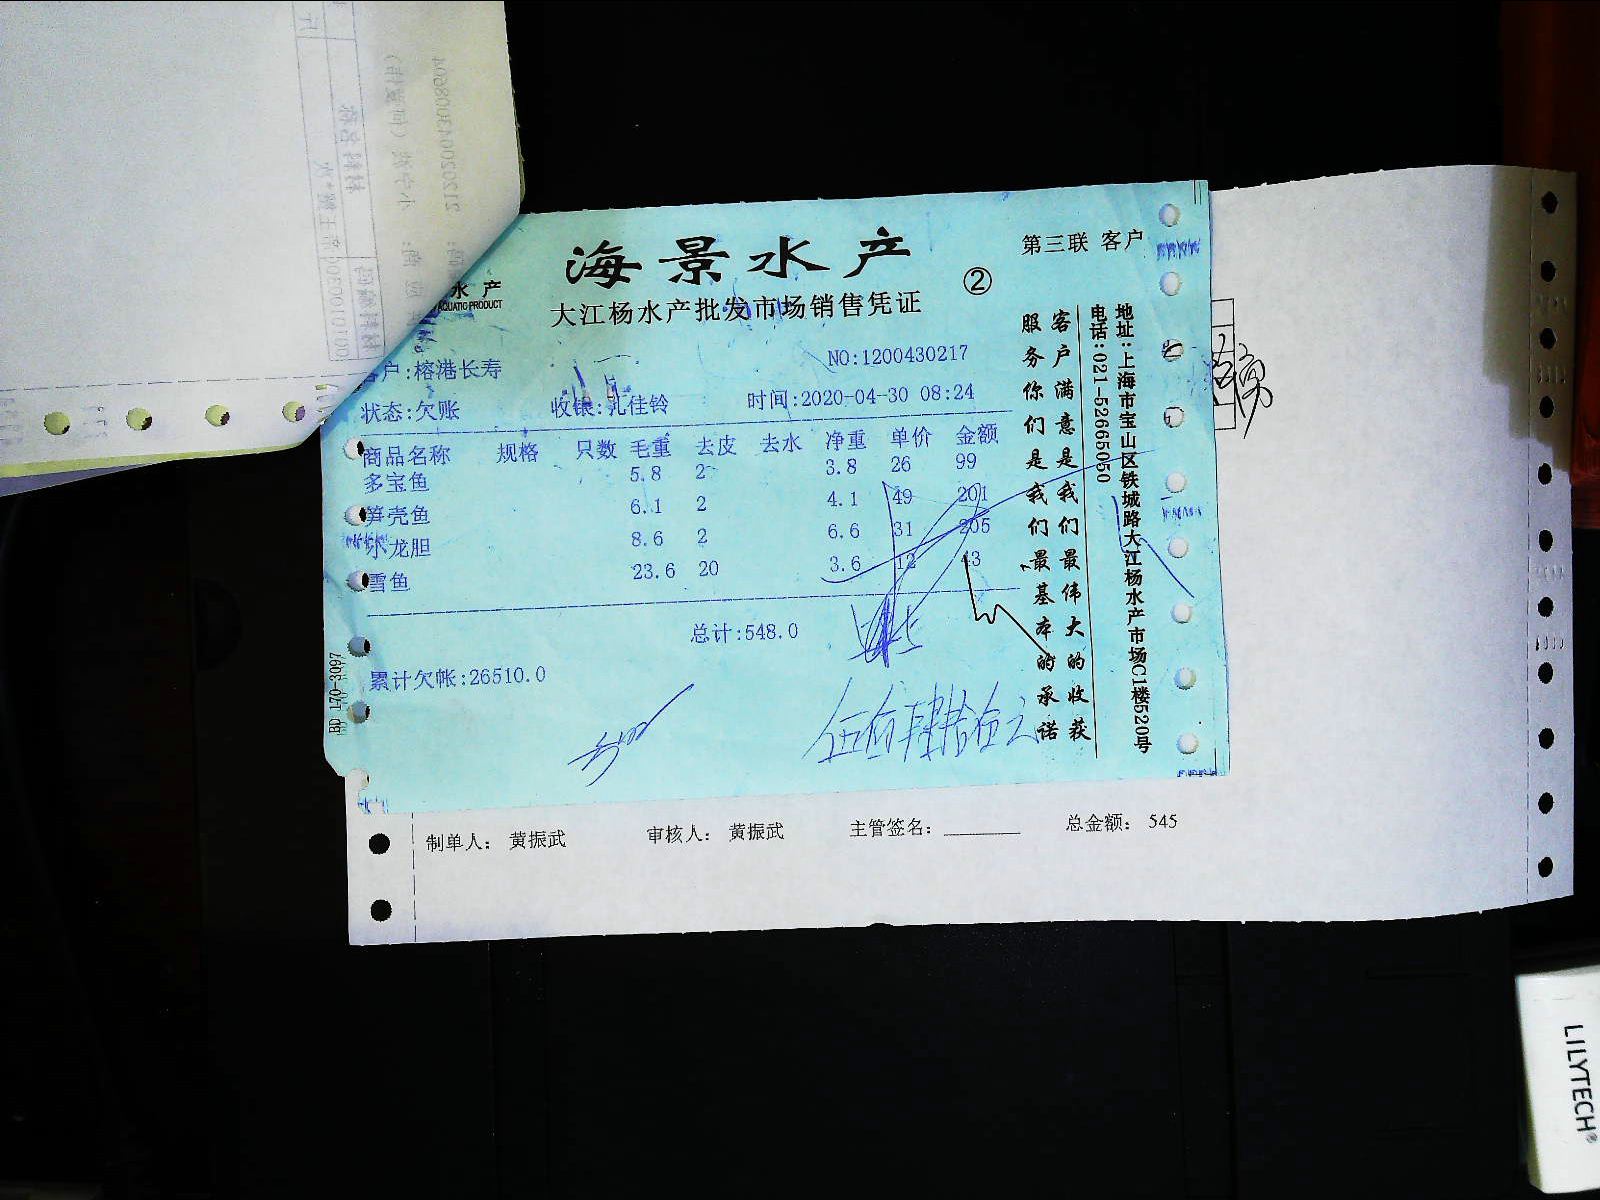 海景水产
第三联 客户
②
大江杨水产批发市场销售凭证
水产
AQUATIC PRODUCT
NO:1200430217
户:榕港长寿
状态:欠账 收银:孔佳铃 时间:2020-04-30 08:24
商品名称 规格 只数 毛重 去皮 去水 净重 单价 金额
多宝鱼 5.8 2 3.8 26 99
笋壳鱼 6.1 2 4.1 49 201
小龙胆 8.6 2 6.6 31 205
雪鱼 23.6 20 3.6 12 43
总计:548.0
累计欠帐:26510.0
伍佰肆拾伍元
客户满意是我们最伟大的收获
服务你们是我们最基本的承诺
地址:上海市宝山区铁城路大江杨水产市场C1楼520号
电话:021-52665050
BD 170-3097
制单人: 黄振武 审核人: 黄振武 主管签名: 总金额: 545
LILYTECH®